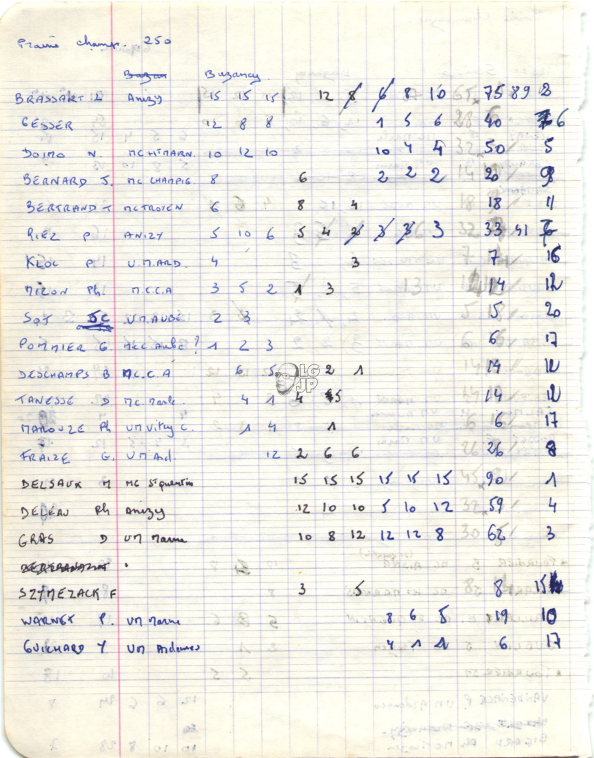 Prairie champ. 250
Bazancy
BRASSART L Anizy 15 15 15 12 8 6 8 10 75 89 2
GESSER 12 8 8 1 5 6 40 6
DOIMO N. MC HTMARN. 10 12 10 10 4 4 50 5
BERNARD J. MC CHAMPIG. 8 6 2 2 2 20 9
BERTRAND MC TROYEN 6 8 4 18 11
RIEZ P ANIZY 5 10 6 5 4 2 3 3 3 33 41
KLOC P. U.M.ARD. 4 3 7 16
MIZON Ph. M.C.C.A 3 5 2 1 3 14 12
SOT JC UM.AUBE 2 3 5 20
POMMIER G MCC aube ? 1 2 3 6 17
DESCHAMPS B MC.C.A 6 5 2 1 14 12
TANESSE D MC. marle. 4 1 4 5 14 12
MAROUZE Ph UM vitry C. 1 4 1 6 17
FRAIZE G. UM Ad. 12 2 6 6 26 8
DELSAUX M MC St quentin 15 15 15 15 15 15 90 1
DELEAU Ph Anizy 12 10 10 5 10 12 59 4
GRAS D UM Marne 10 8 12 12 12 8 62 3
SZYMEZACK F 3 5 8 15
WARNET P. UM Marne 8 6 5 19 10
GUICHARD Y UM Ardennes 4 1 1 6 17
LG
JP